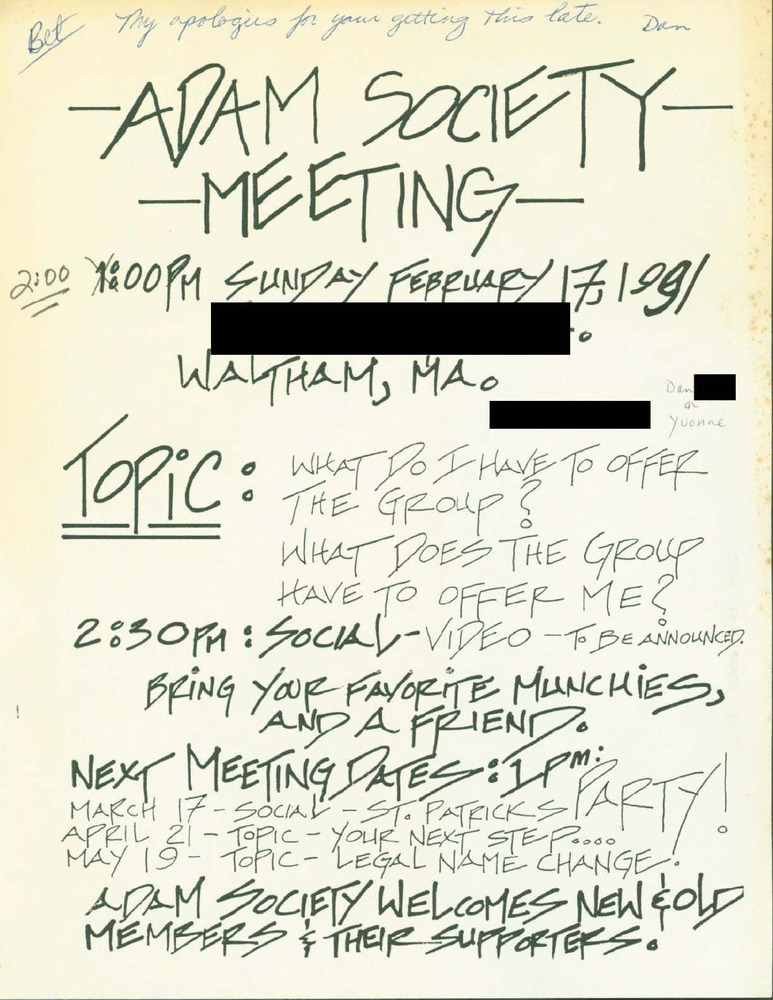 Bet My apologies for your getting this late. Dan
—ADAM SOCIETY—
—MEETING—
2:00 1:00PM SUNDAY FEBRUARY 17, 1991
WALTHAM, MA.
Dan
or
Yvonne
TOPIC: WHAT DO I HAVE TO OFFER
THE GROUP?
WHAT DOES THE GROUP
HAVE TO OFFER ME?
2:30PM: SOCIAL-VIDEO-TO BE ANNOUNCED.
BRING YOUR FAVORITE MUNCHIES,
AND A FRIEND.
NEXT MEETING DATES: 1PM:
MARCH 17 - SOCIAL - ST. PATRICKS PARTY!
APRIL 21 - TOPIC - YOUR NEXT STEP....
MAY 19 - TOPIC - LEGAL NAME CHANGE.
ADAM SOCIETY WELCOMES NEW & OLD
MEMBERS & THEIR SUPPORTERS.